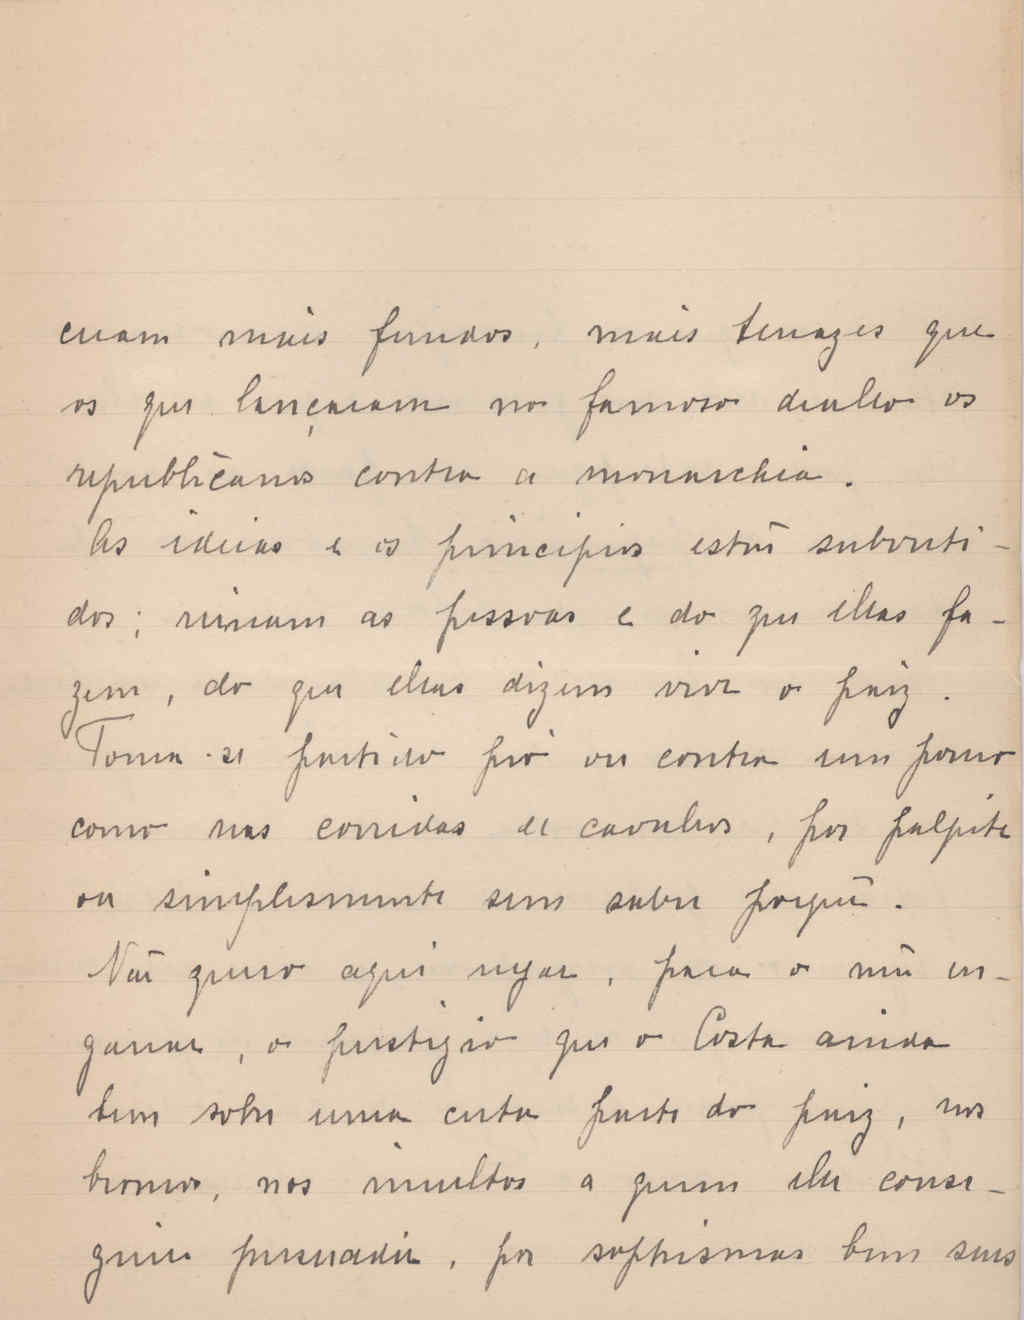 eram mais fundos, mais tenazes que
os que lançaram no famoso diaho os
republicanos contra a monarchia.
As ideias e os principios estão subverti-
dos; reinam as pessoas e do que ellas fa-
zem, do que ellas dizem vive o paiz.
Toma-se partido pró ou contra um
como nas corridas de cavallos, por palpite
ou simplesmente sem saber porquê.
Não quero aqui negar, para o não en-
ganar, o prestigio que o Costa ainda
tem sobre uma certa parte do paiz, nos
broncos, nos incultos a quem elle conse-
guiu persuadir, por sophismas bem seus